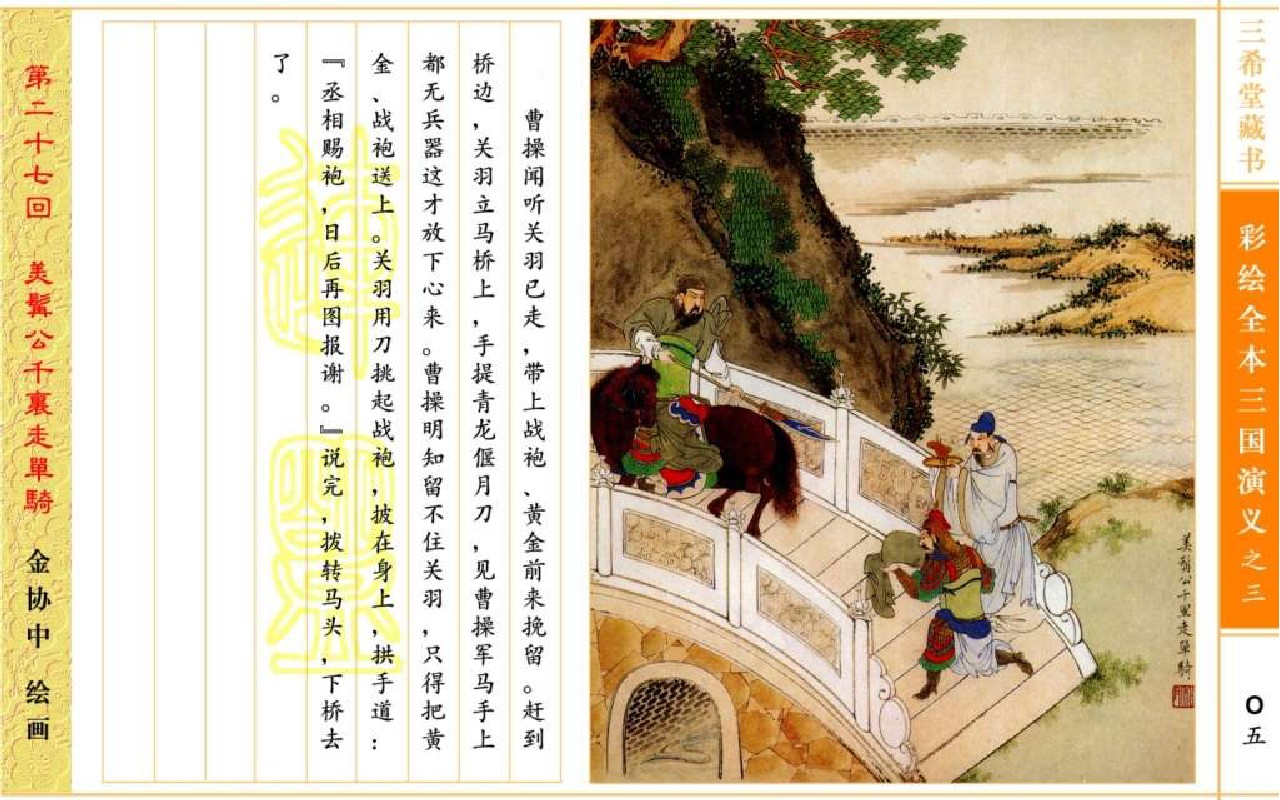 三希堂藏书
彩绘全本三国演义之三
〇五
美髯公千里走單騎
曹操闻听关羽已走，带上战袍、黄金前来挽留。赶到
桥边，关羽立马桥上，手提青龙偃月刀，见曹操军马手上
都无兵器这才放下心来。曹操明知留不住关羽，只得把黄
金、战袍送上。关羽用刀挑起战袍，披在身上，拱手道：
『丞相赐袍，日后再图报谢。』说完，拨转马头，下桥去
了。
第二十七回 美髯公千裏走單騎 金协中 绘画